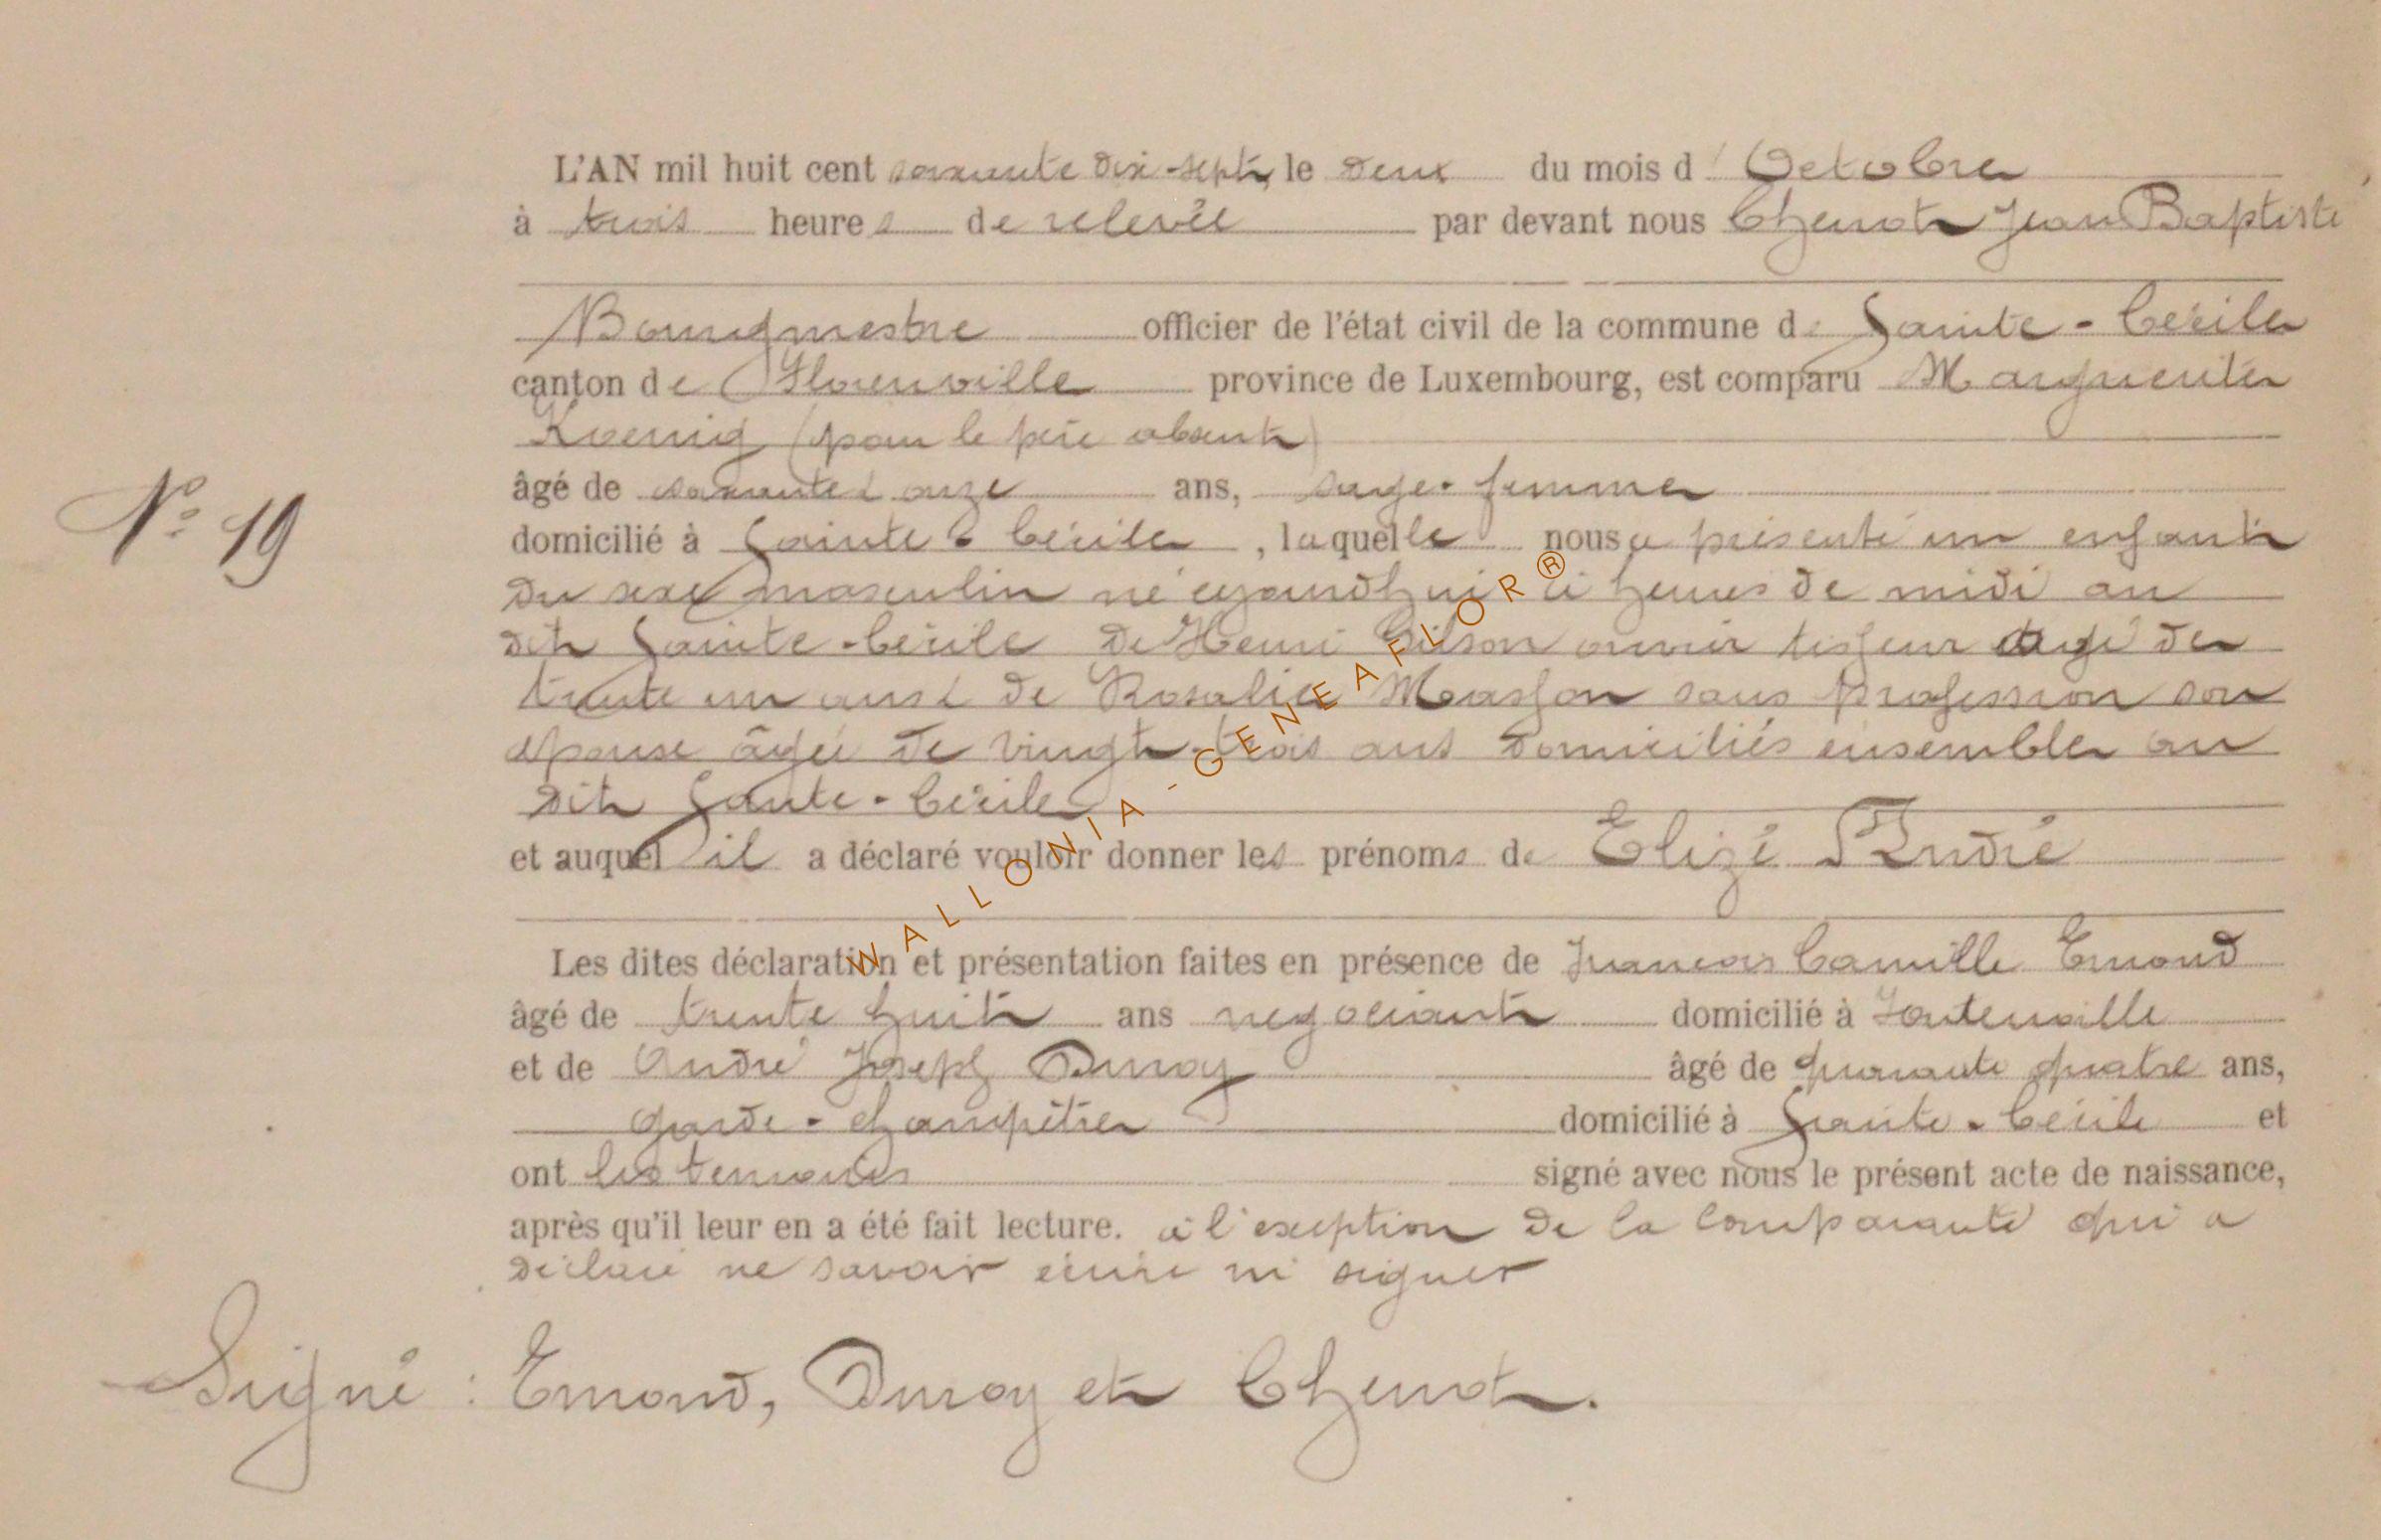 L'AN mil huit cent soixante dix-sept, le deux du mois d'Octobre
à trois heures de relevée par devant nous Chenot Jean Baptiste
Bourgmestre officier de l'état civil de la commune de Sainte-Cécile
canton de Florenville province de Luxembourg, est comparu Marguerite
Koenig (pour le père absent)
N° 19
âgé de soixante onze ans, sage-femme
domicilié à Sainte Cécile, laquelle nous a présenté un enfant
du sexe masculin né aujourd'hui heures de midi au
dit Sainte-Cécile de Henri Gilson ouvrier tisseur âgé de
trente un ans & de Rosalie Masson sans profession son
épouse âgée de vingt-trois ans domiciliés ensemble au
dit Sainte-Cécile
et auquel il a déclaré vouloir donner les prénoms de Elizé André
Les dites déclaration et présentation faites en présence de François Camille Emond
âgé de trente huit ans negociant domicilié à Fontenoille
et de André Joseph Duroy âgé de quarante quatre ans,
garde-champêtre domicilié à Sainte-Cécile et
ont les temoins signé avec nous le présent acte de naissance,
après qu'il leur en a été fait lecture. à l'exception de la comparante qui a
déclaré ne savoir écrire ni signer
Signé : Emond, Duroy et Chenot.
WALLONIA - GENEAFLOR®